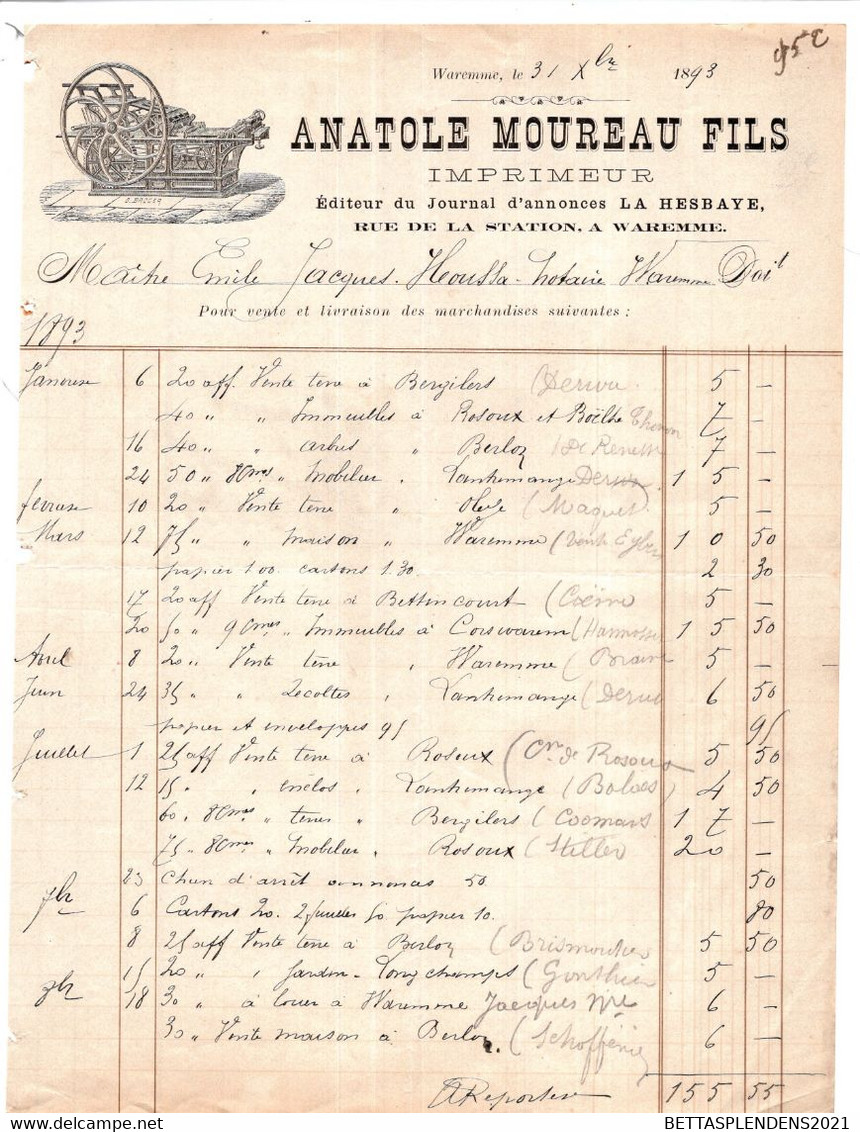 95c
Waremme, le 31 Xbre 1893
ANATOLE MOUREAU FILS
IMPRIMEUR
Éditeur du Journal d'annonces LA HESBAYE,
RUE DE LA STATION, A WAREMME.
Maître Emile Jacques-Heoussa - notaire Waremme Doit
Pour vente et livraison des marchandises suivantes :
1893
Janvier 6 20 aff. Vente terre à Bergilers (Derwa 5 —
40 " " Immeubles à Rosoux et Boëlhe Thonon 7 —
16 40 " " arbres " Berloz (De Renesse 7 —
24 50 " 80mes " Mobilier " Lantremange Derwa 15 —
fevrier 10 20 " Vente terre " (Maquet) 5 —
Mars 12 75 " " maison " Waremme (Vente 10 50
papier 1.00. cartons 1.30. 2 30
17 20 aff Vente terre à Bettincourt (Coëme 5 —
20 50 " 90mes " Immeubles à Corswarem (Hannosse 15 50
Avril 8 20 " Vente terre " Waremme (Braive 5 —
Juin 24 35 " " Recoltes " Lantremange (Derwa 6 50
papier et enveloppes 95 95
Juillet 1 25 aff Vente terre à Rosoux (Cn de Rosoux 5 50
12 15 " " enclos " Lantremange (Bolaes) 4 50
60 " 80mes " terres " Bergilers (Coomans 17 —
75 " 80mes " Mobilier " Rosoux (Stiller 20 —
23 d'arrêt annonces 50. 50
7bre 6 Cartons 20. 2 feuilles 50 papier 10. 80
8 25 aff Vente terre à Berloz (Brismoutier 5 50
15 20 " " Jardin - Longchamps (Gonthier 5 —
9bre 18 30 " à louer à Waremme Jacques Nre 6 —
30 " Vente maison à Berloz. (Schoffenie 6 —
A Reporter 155 55
D. BROCER
BETTASPLENDENS2021